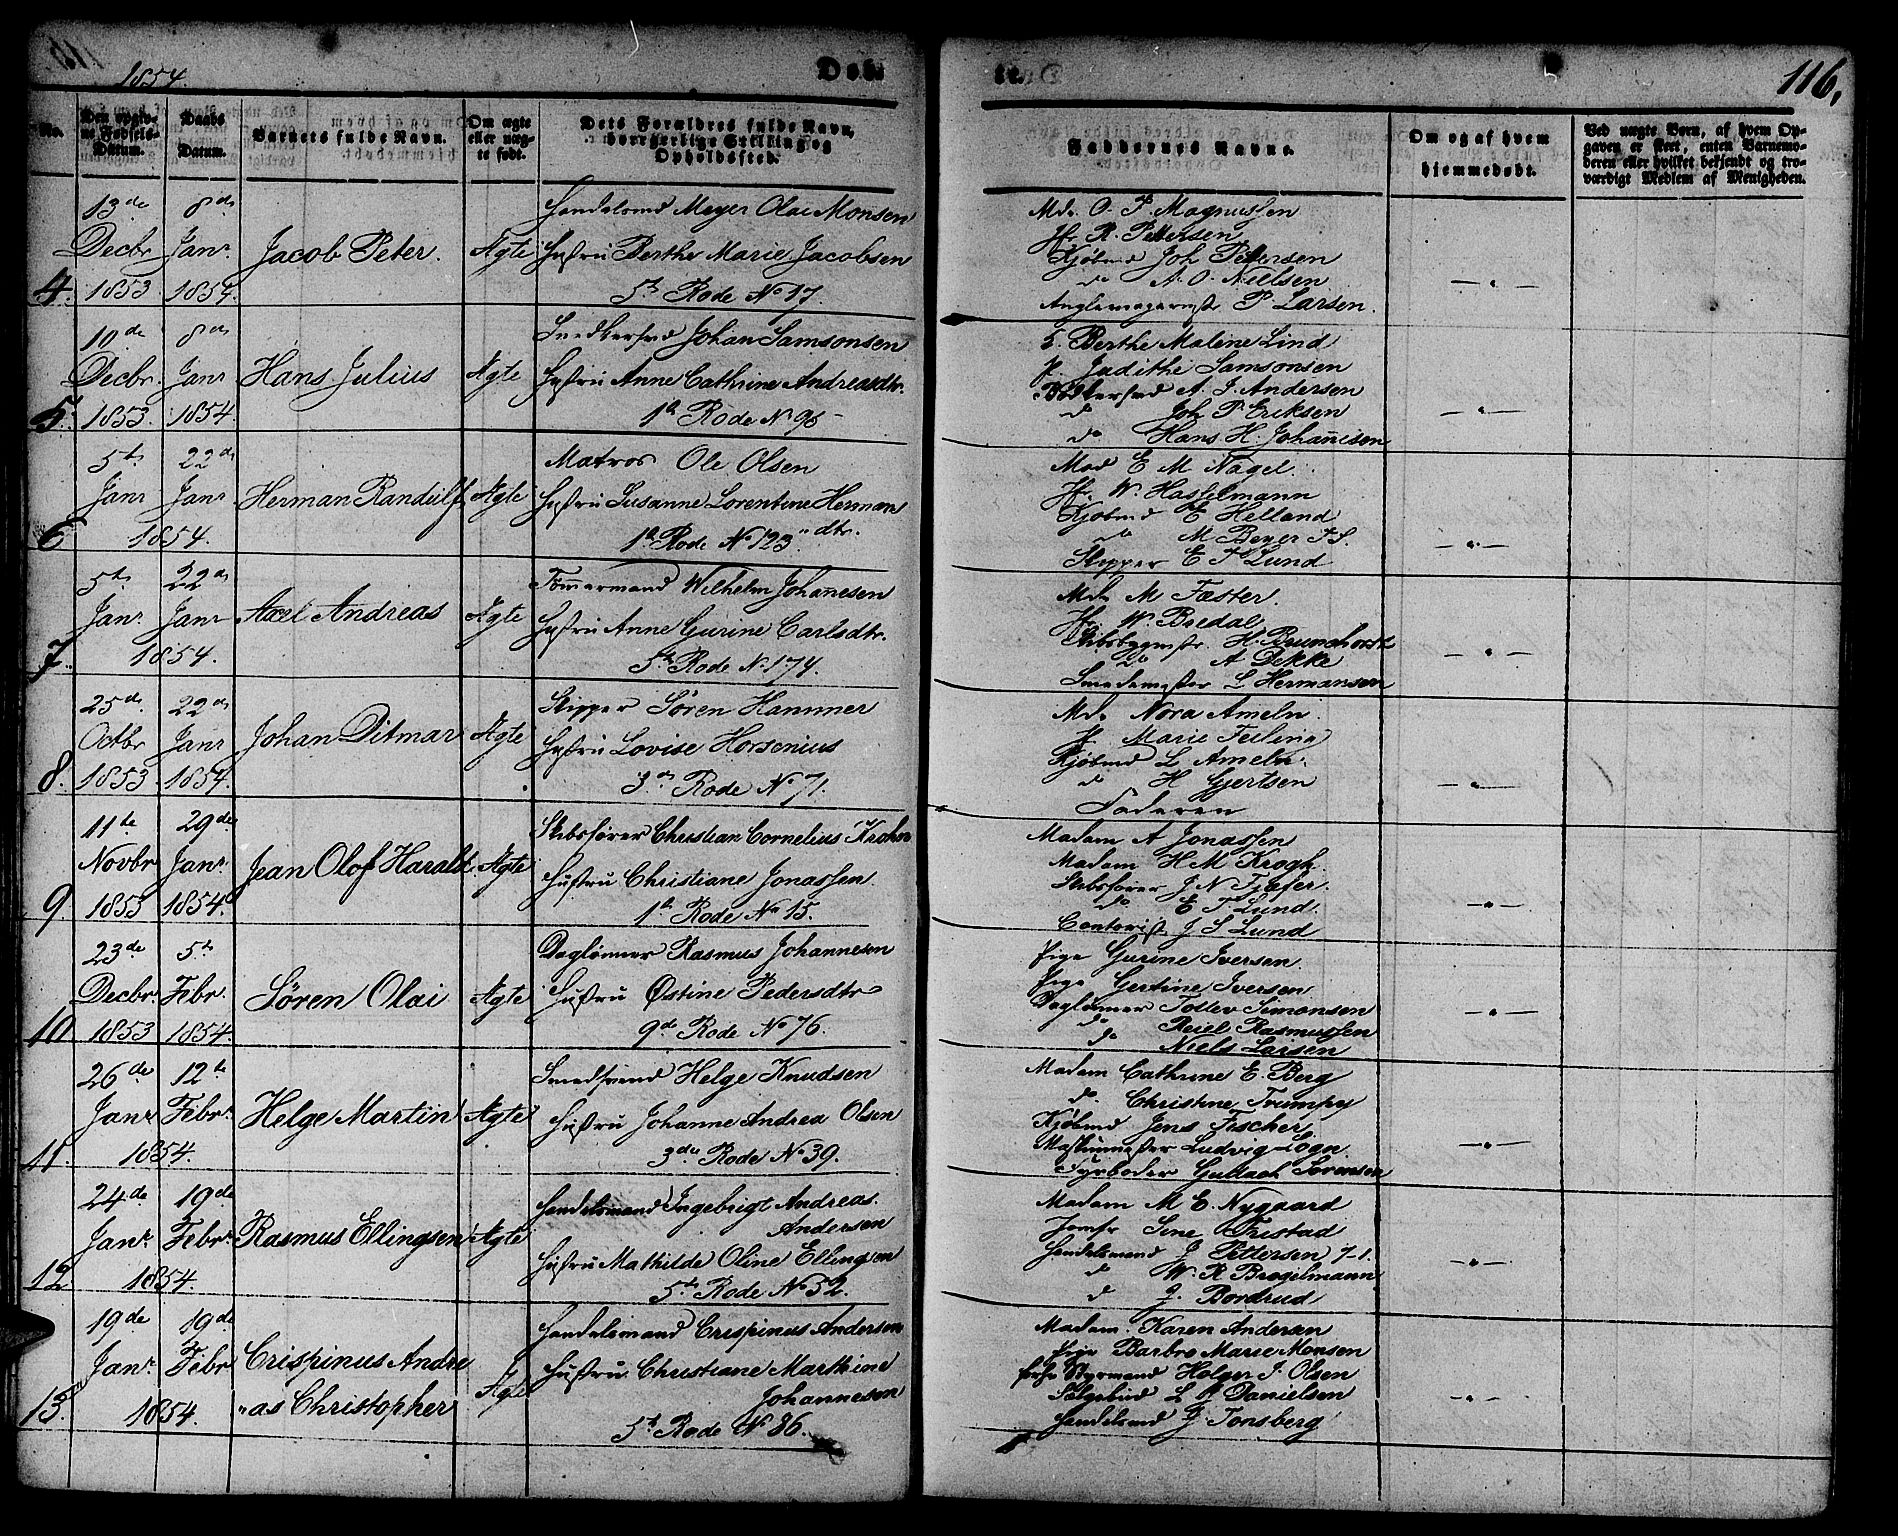 1854.
Døb-
te.
116.
No.
Den opgiv-
ne Fødsels-
Datum.
Daabs
Datum.
Barnets fulde Navn.
Om ægte
eller uæg-
te født.
Dets Forældres fulde Navn,
borgerlige Stilling og
Opholdssted.
Faddernes Navne.
Om og af hvem
hjemmedøbt.
Ved uægte Børn, af hvem Op-
gaven er skeet, enten Barnemo-
deren eller hvilket bekjendt og tro-
værdigt Medlem af Menigheden.
4.
13de Decbr 1853
8de Janr 1854.
Jacob Peter.
Ægte
Handelsmd Meyer Olai Monsen
Hustru Berthe Marie Jacobsen
5te Rode No 17.
Md. O. P. Magnussen
Jfr. R. Pettersen
Kjøbmd Joh Pettersen
do A. O. Nielsen
P Larsen.
5.
10de Decbr. 1853.
8de Janr 1854
Hans Julius
Ægte
Snedkersvd Johan Samsonsen
Hustru Anne Cathrine Andreasdtr.
1te Rode No 96
Berthe Malene Lind
P. Judithe Samsonsen
Bødkersvd A. J. Andersen
do Joh P. Eriksen
do Hans H. Johannesen
6
5te Janr
22de Janr
1854.
Herman Randulf
Ægte
Matros Ole Olsen
Hustru Susanne Lorentine Hermans
"dtr.
1te Rode No 123
Mad E M Nagel.
Jfr. W. Hasselmann
Kjøbmd E Helland
do M Beyer J.S.
Skipper E T Lund
7.
5te Janr
22de Janr
1854.
Axel Andreas
Ægte
Tømmermand Wilhelm Johannesen
Hustru Anne Gurine Carlsdtr.
5te Rode No 174.
Md. M Fæster.
Jfr. W. Bredal
Skibsbygmstr. H. Brunchorst
Do A Dekke
Smedemester L Hermansen
8.
25de Octbr 1853
22de Janr 1854.
Johan Ditmar
Ægte
Skipper Søren Hammer
Hustru Lovise Horsenius
3de Rode No 71.
Md. Nora Ameln.
P. Marie
Kjøbmd L Ameln.
do H Gjertsen
Faderen
9
11te Novbr 1853
29de Janr. 1854.
Jean Olof Harald
Ægte
Skibsfører Christian Cornelius Krohn
Hustru Christiane Jonassen.
1te Rode No 15.
Madam A Jonassen
Madam H M Krogh.
Skibsfører J N Tjæfer.
do E T. Lund.
Contorist J S Lund
10
23de Decbr 1853
5te Febr. 1854.
Søren Olai
Ægte
Daglønner Rasmus Johannesen
Hustru Østine Pedersdtr
9de Rode No 76.
Pige Gurine Iversen.
Pige Gertine Iversen
Daglønner Tollev Simonsen
do Reiel Rasmussen
do Niels Larsen
11.
26de Janr
12te Febr.
1854.
Helge Martin
Ægte
Smedsvend Helge Knudsen
Hustru Johanne Andrea Olsen
3die Rode No 39.
Madam Cathrine E. Berg
do. Christine Trumpy
Kjøbmd Jens Fischer
Maskinmester Ludvig Logn.
Fyrbøder Gullach Sørensen
12.
24de Janr.
19de Febr.
1854.
Rasmus Ellingsen
Ægte
Handelsmand Ingebrigt Andreas.
Andersen
Hustru Mathilde Oline Ellingsen
5te Rode No 52.
Madam M. E. Nygaard
Jomfr Sine Tristad
Handelsmand J Pettersen
do W. R Brøgelmann
d J. Bordrud
13.
19de Janr.
19de Febr
1854.
Crispinus Andre
"as Christopher
Ægte
Handelsmand Crispinus Andersen
Hustru. Christiane Marthine
Johannesen
5te Rode No 86.
Madam Karen Andersen
Pige Barbro Marie Monsen
Styrmand Holger J. Olsen
L Danielsen
Handelsmd J Tonsberg